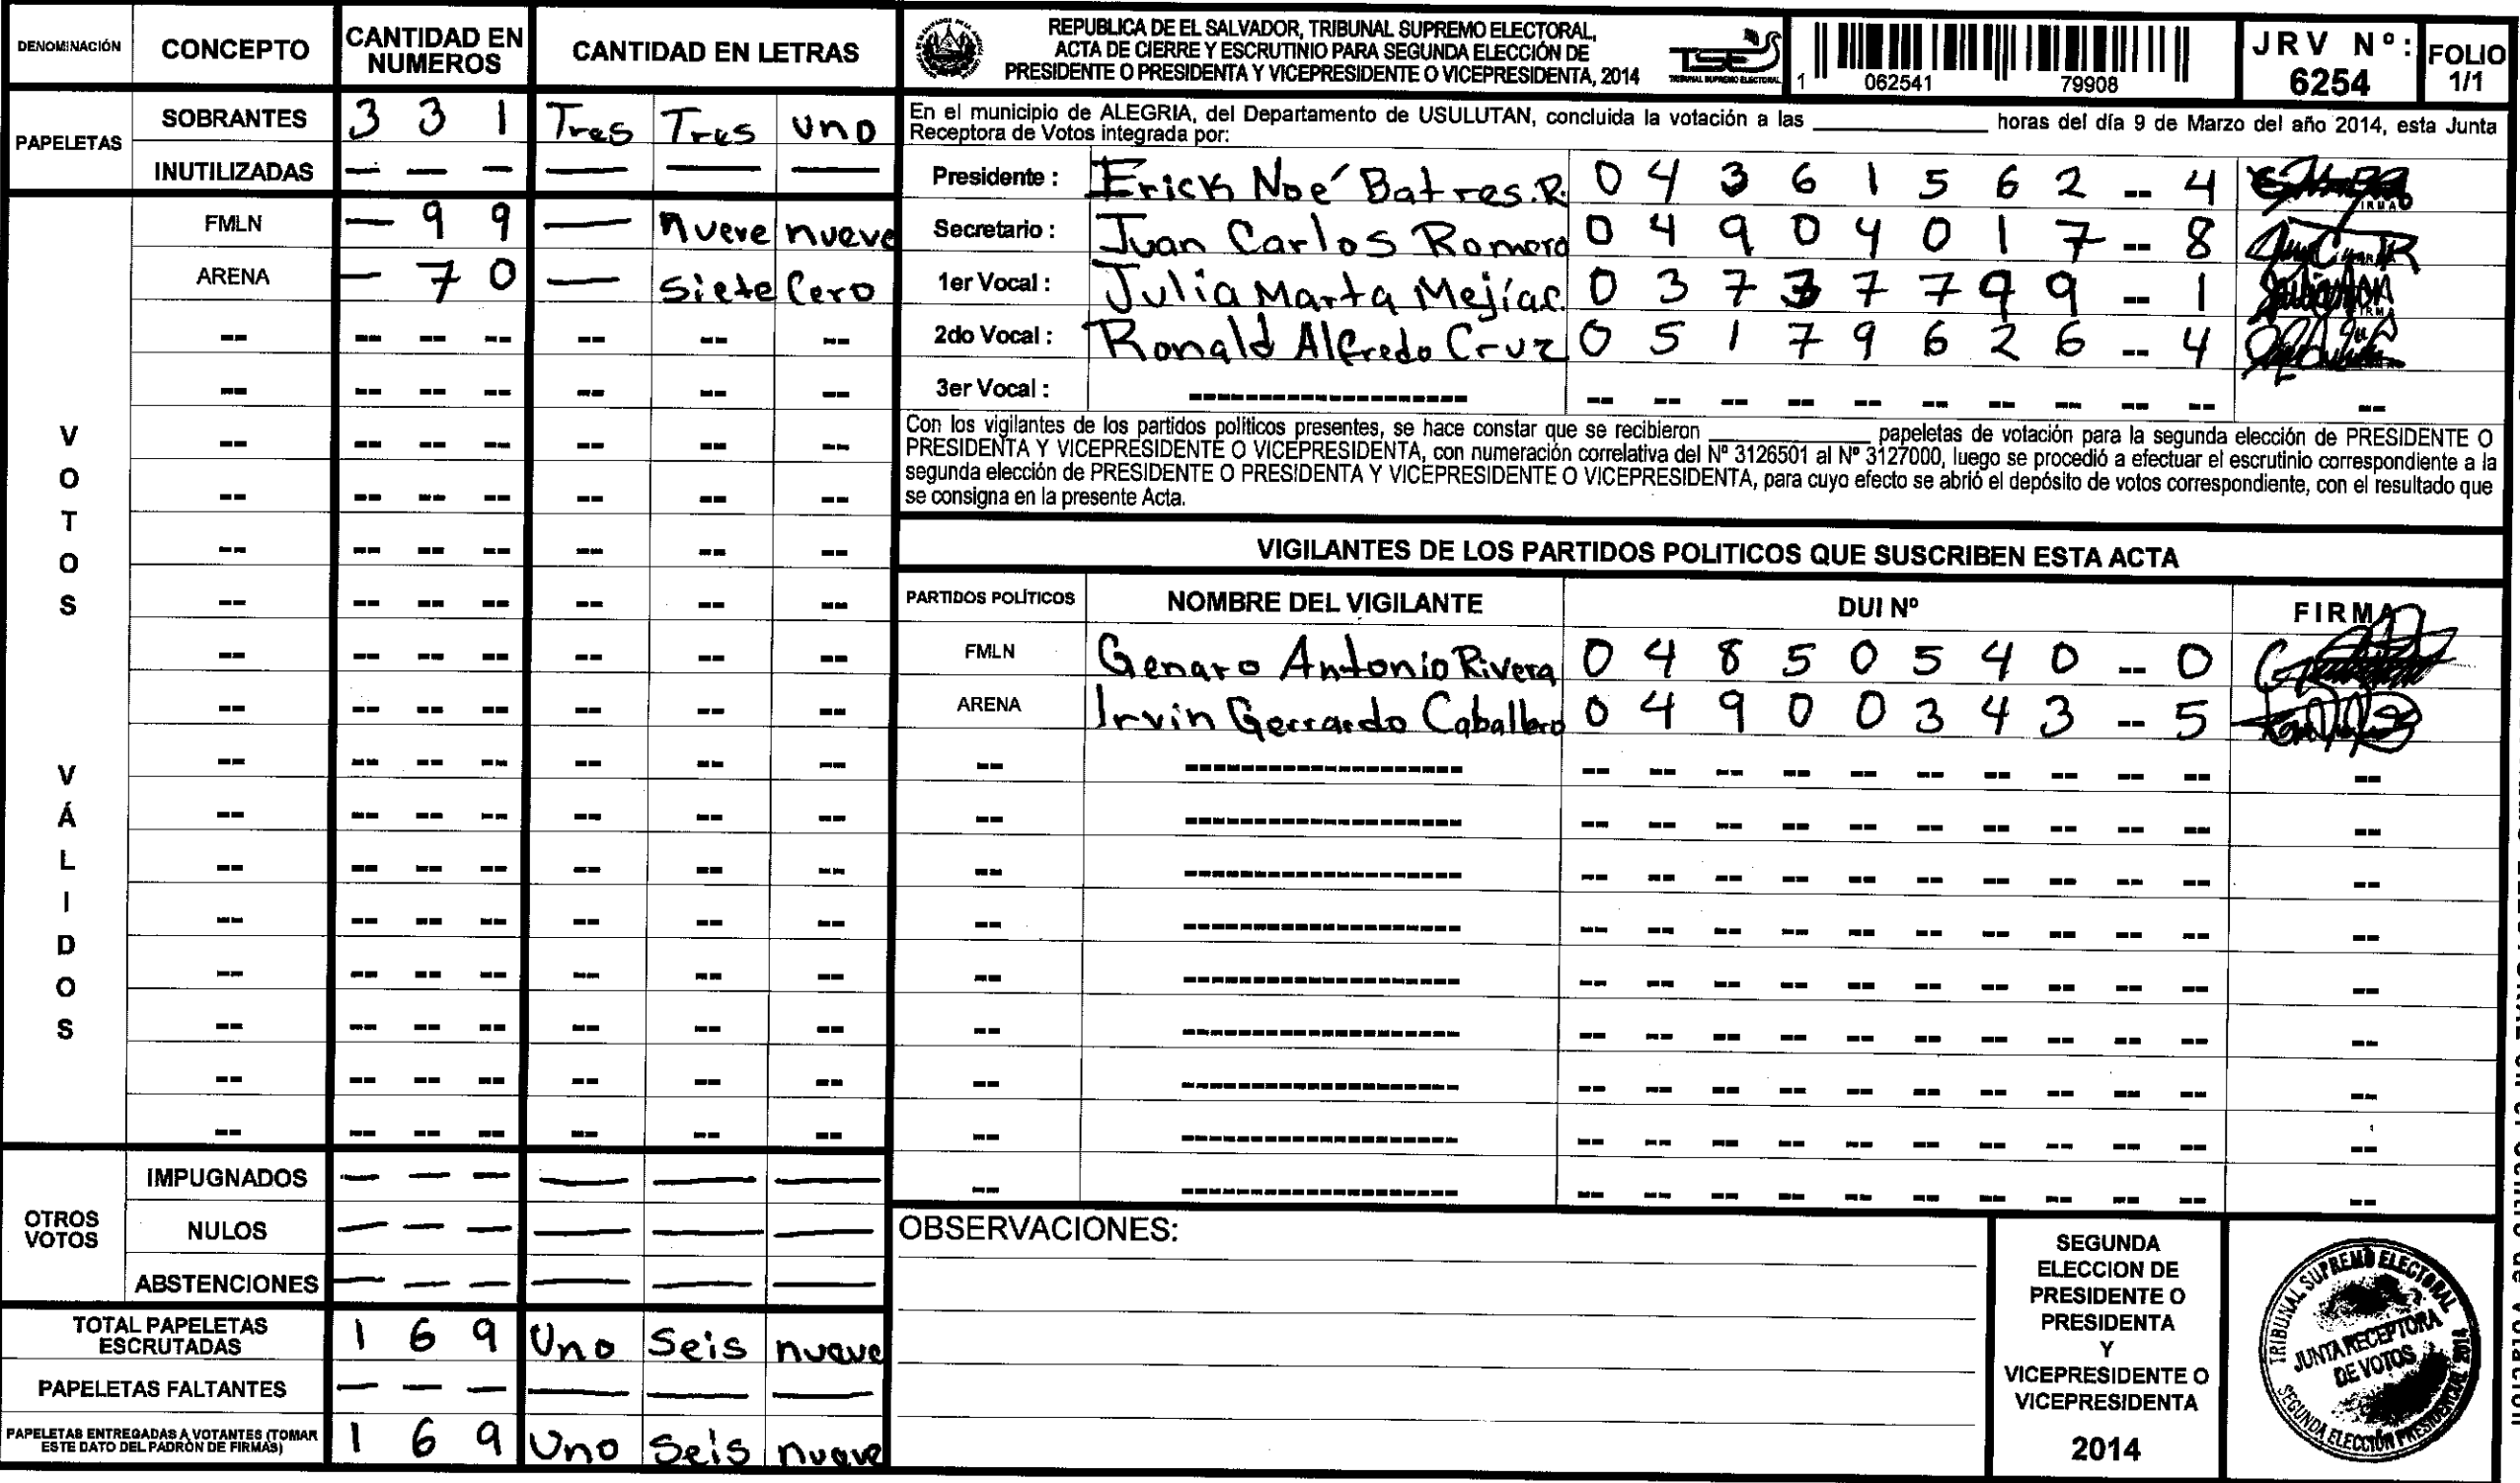 DENOMINACIÓN CONCEPTO CANTIDAD EN NUMEROS CANTIDAD EN LETRAS
PAPELETAS
SOBRANTES 3 3 1 Tres Tres Uno
INUTILIZADAS — — — — — —
VOTOS VÁLIDOS
FMLN — 9 9 — nueve nueve
ARENA — 7 0 — Siete Cero
OTROS VOTOS
IMPUGNADOS — — — — — —
NULOS — — — — — —
ABSTENCIONES — — — — — —
TOTAL PAPELETAS ESCRUTADAS 1 6 9 Uno Seis nueve
PAPELETAS FALTANTES — — — — — —
PAPELETAS ENTREGADAS A VOTANTES (TOMAR ESTE DATO DEL PADRÓN DE FIRMAS) 1 6 9 Uno Seis nueve
REPUBLICA DE EL SALVADOR, TRIBUNAL SUPREMO ELECTORAL,
ACTA DE CIERRE Y ESCRUTINIO PARA SEGUNDA ELECCIÓN DE
PRESIDENTE O PRESIDENTA Y VICEPRESIDENTE O VICEPRESIDENTA, 2014
TSE
TRIBUNAL SUPREMO ELECTORAL
1 062541 79908
JRV Nº: 6254
FOLIO 1/1
En el municipio de ALEGRIA, del Departamento de USULUTAN, concluida la votación a las ____ horas del día 9 de Marzo del año 2014, esta Junta
Receptora de Votos integrada por:
Presidente : Erick Noé Batres.R. 0 4 3 6 1 5 6 2 -- 4
Secretario : Juan Carlos Romero 0 4 9 0 4 0 1 7 -- 8
1er Vocal : Julia Marta Mejía c. 0 3 7 3 7 7 9 9 -- 1
2do Vocal : Ronald Alfredo Cruz 0 5 1 7 9 6 2 6 -- 4
3er Vocal :
Con los vigilantes de los partidos políticos presentes, se hace constar que se recibieron ____ papeletas de votación para la segunda elección de PRESIDENTE O
PRESIDENTA Y VICEPRESIDENTE O VICEPRESIDENTA, con numeración correlativa del Nº 3126501 al Nº 3127000, luego se procedió a efectuar el escrutinio correspondiente a la
segunda elección de PRESIDENTE O PRESIDENTA Y VICEPRESIDENTE O VICEPRESIDENTA, para cuyo efecto se abrió el depósito de votos correspondiente, con el resultado que
se consigna en la presente Acta.
VIGILANTES DE LOS PARTIDOS POLITICOS QUE SUSCRIBEN ESTA ACTA
PARTIDOS POLÍTICOS NOMBRE DEL VIGILANTE DUI Nº FIRMA
FMLN Genaro Antonio Rivera 0 4 8 5 0 5 4 0 -- 0
ARENA Irvin Gerrardo Caballero 0 4 9 0 0 3 4 3 -- 5
OBSERVACIONES:
SEGUNDA
ELECCION DE
PRESIDENTE O
PRESIDENTA
Y
VICEPRESIDENTE O
VICEPRESIDENTA
2014
TRIBUNAL SUPREMO ELECTORAL 2014
JUNTA RECEPTORA
DE VOTOS
SEGUNDA ELECCIÓN PRESIDENCIAL